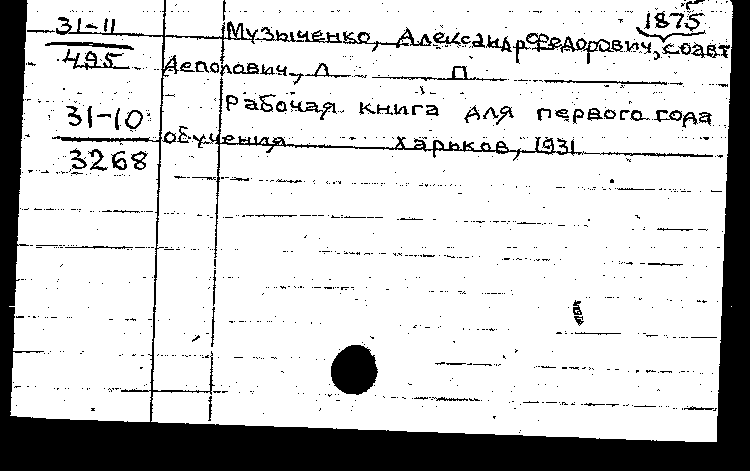 1875
31-11 Музыченко, Александр Федорович, соавт
495 Деполович, Л П
31-10 Рабочая книга для первого года
3268 обучения Харьков, 1931